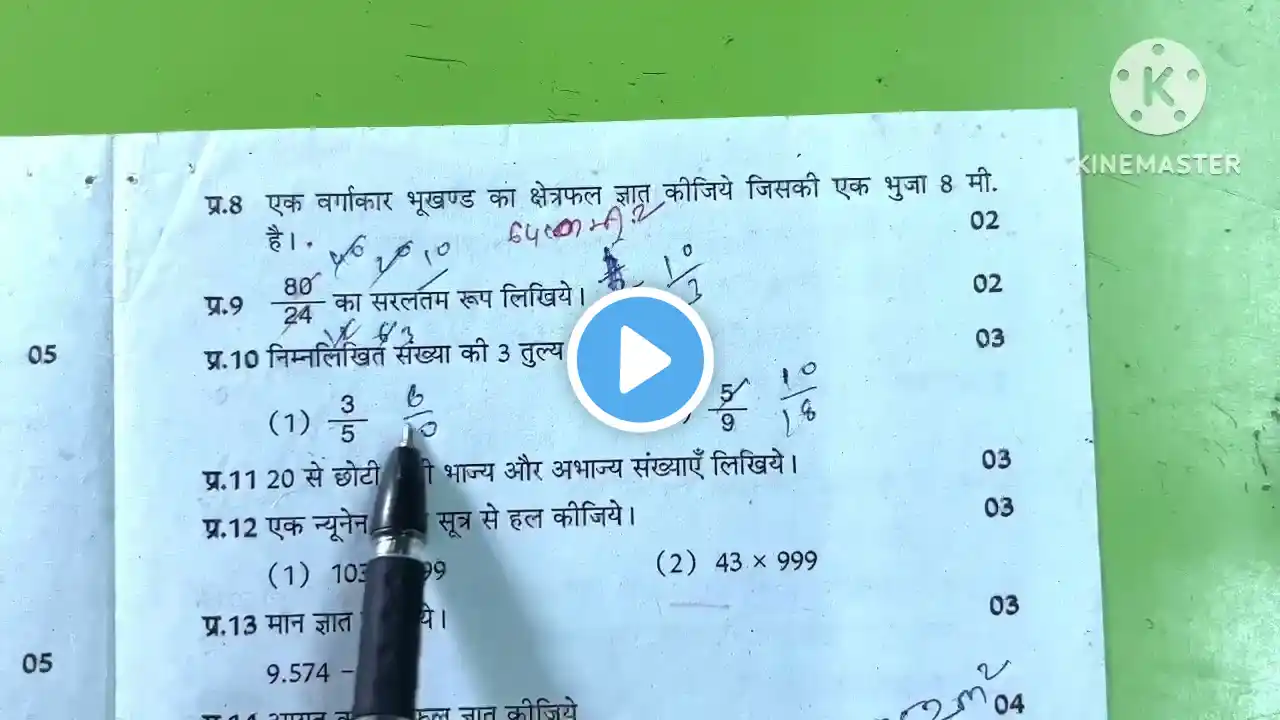 KINEMASTER
प्र.8 एक वर्गाकार भूखण्ड का क्षेत्रफल ज्ञात कीजिये जिसकी एक भुजा 8 मी.
है। 02
10
प्र.9 80/24 का सरलतम रूप लिखिये। 10/3 02
3
05 प्र.10 निम्नलिखित संख्या की 3 तुल्य 03
(1) 3/5 6/10 5/9 10/18
प्र.11 20 से छोटी भाज्य और अभाज्य संख्याएँ लिखिये। 03
प्र.12 एक सूत्र से हल कीजिये। 03
(1) (2) 43 × 999
प्र.13 मान ज्ञात 03
05 9.574 -
04